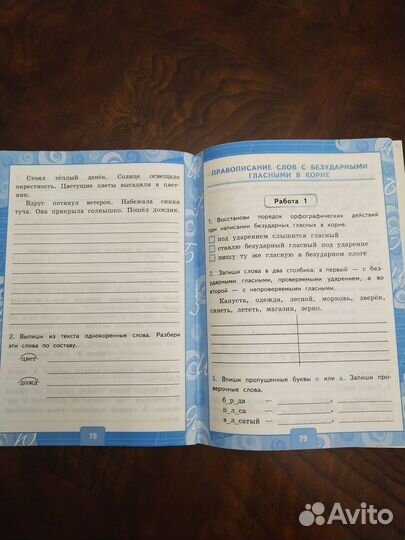 Стоял тёплый денёк. Солнце освещало
окрестность. Цветущие цветы высадили в цвет-
ник.
Вдруг потянул ветерок. Набежала синяя
туча. Она прикрыла солнышко. Пошёл дождик.
2. Выпиши из текста однокоренные слова. Разбери
эти слова по составу.
цвет
дожд
78
ПРАВОПИСАНИЕ СЛОВ С БЕЗУДАРНЫМИ
ГЛАСНЫМИ В КОРНЕ
Работа 1
1. Восстанови порядок орфографических действий
при написании безударных гласных в корне.
под ударением слышится гласный
ставлю безударный гласный под ударение
пишу ту же гласную в безударном слоге
2. Запиши слова в два столбика: в первый — с без-
ударными гласными, проверяемыми ударением, а во
второй — с непроверяемыми гласными.
Капуста, одежда, лесной, морковь, зверёк,
синеть, лететь, магазин, зерно.
3. Впиши пропущенные буквы о или а. Запиши про-
верочные слова.
б_р_да — ,
п_л_са — ,
в_л_сатый — ,
79
Avito